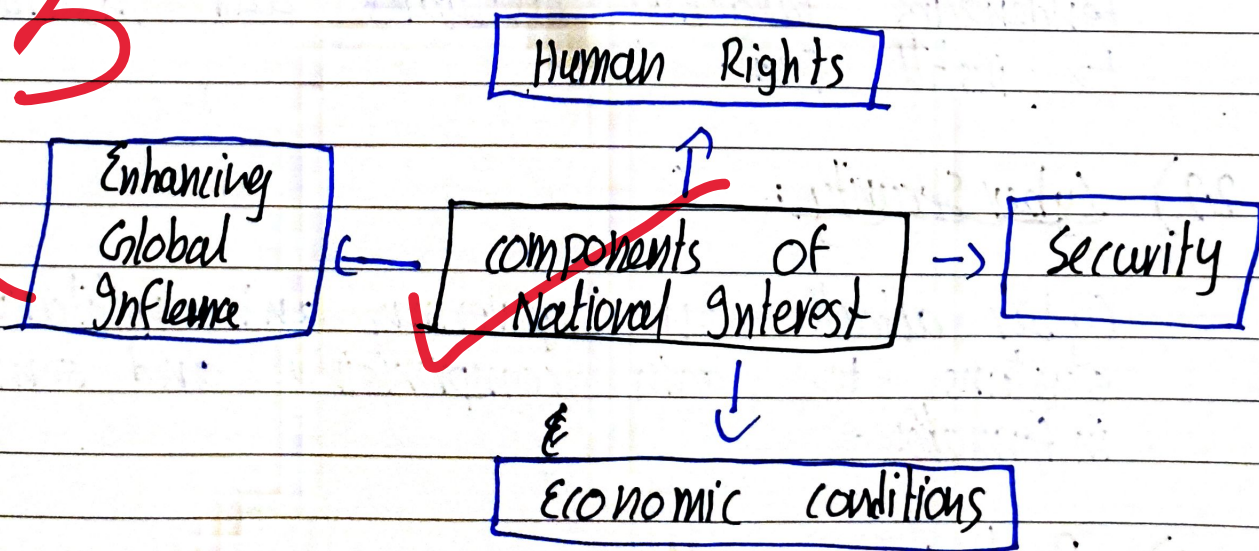 5
Human Rights
Enhancing
Global
Influence
components of
National Interest
Security
Economic conditions